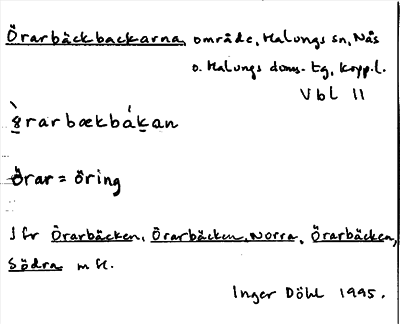 Örarbäckbackarna, område, Malungs sn, Nås
o. Malungs doms. tg, Kopp.l.
Vbl 11
Örar = öring
Jfr Örarbäcken, Örarbäcken, Norra, Örarbäcken,
Södra m fl.
Inger Döhl 1995.